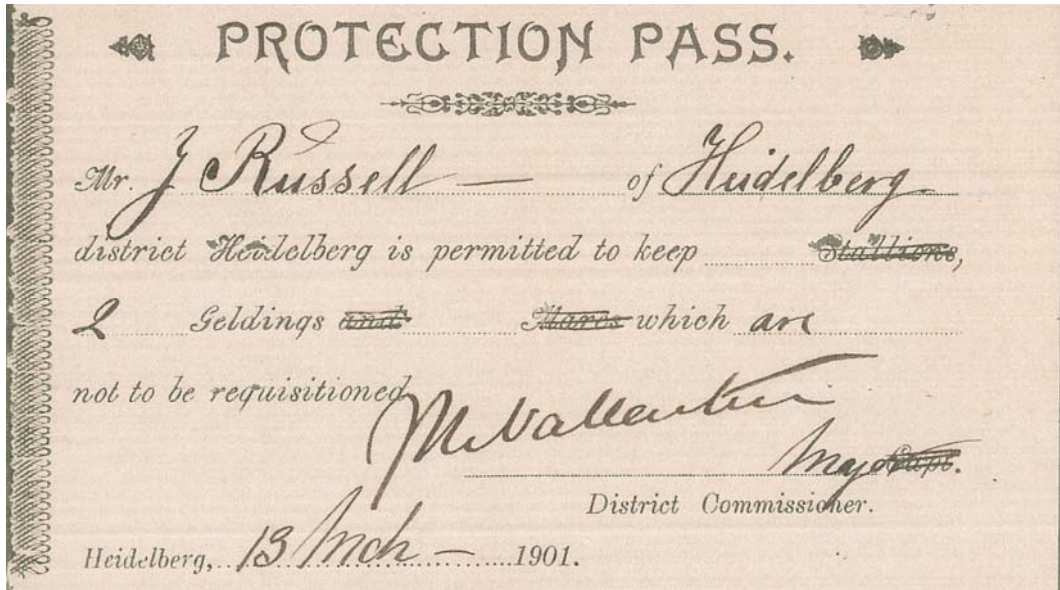 PROTECTION PASS.
Mr. J Russell — of Heidelberg.
district Heidelberg is permitted to keep Stallions,
2 Geldings and Mares which are
not to be requisitioned
Major Capt.
District Commissioner.
Heidelberg, 13 Mch — 1901.